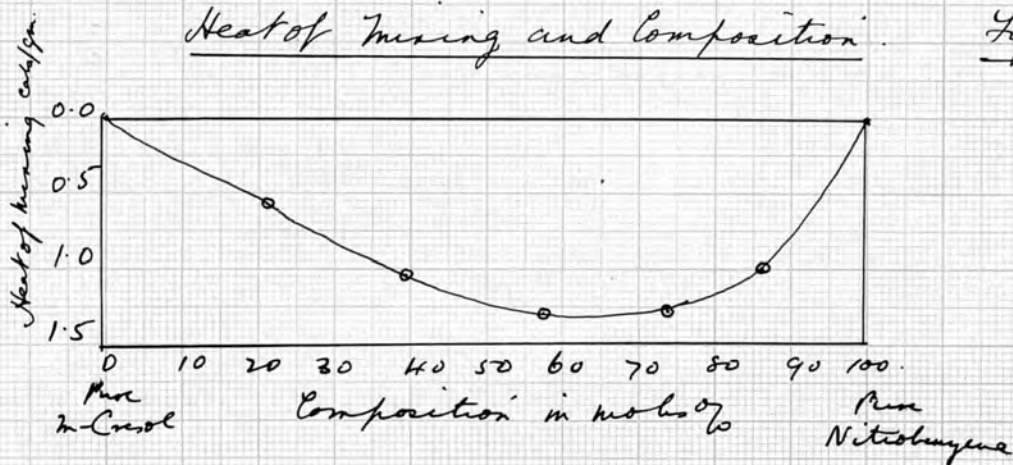 Heat of Mixing and Composition.
Heat of Mixing cals/gm.
0.0
0.5
1.0
1.5
0 10 20 30 40 50 60 70 80 90 100.
Pure
m-Cresol
Composition in mols %
Pure
Nitrobenzene